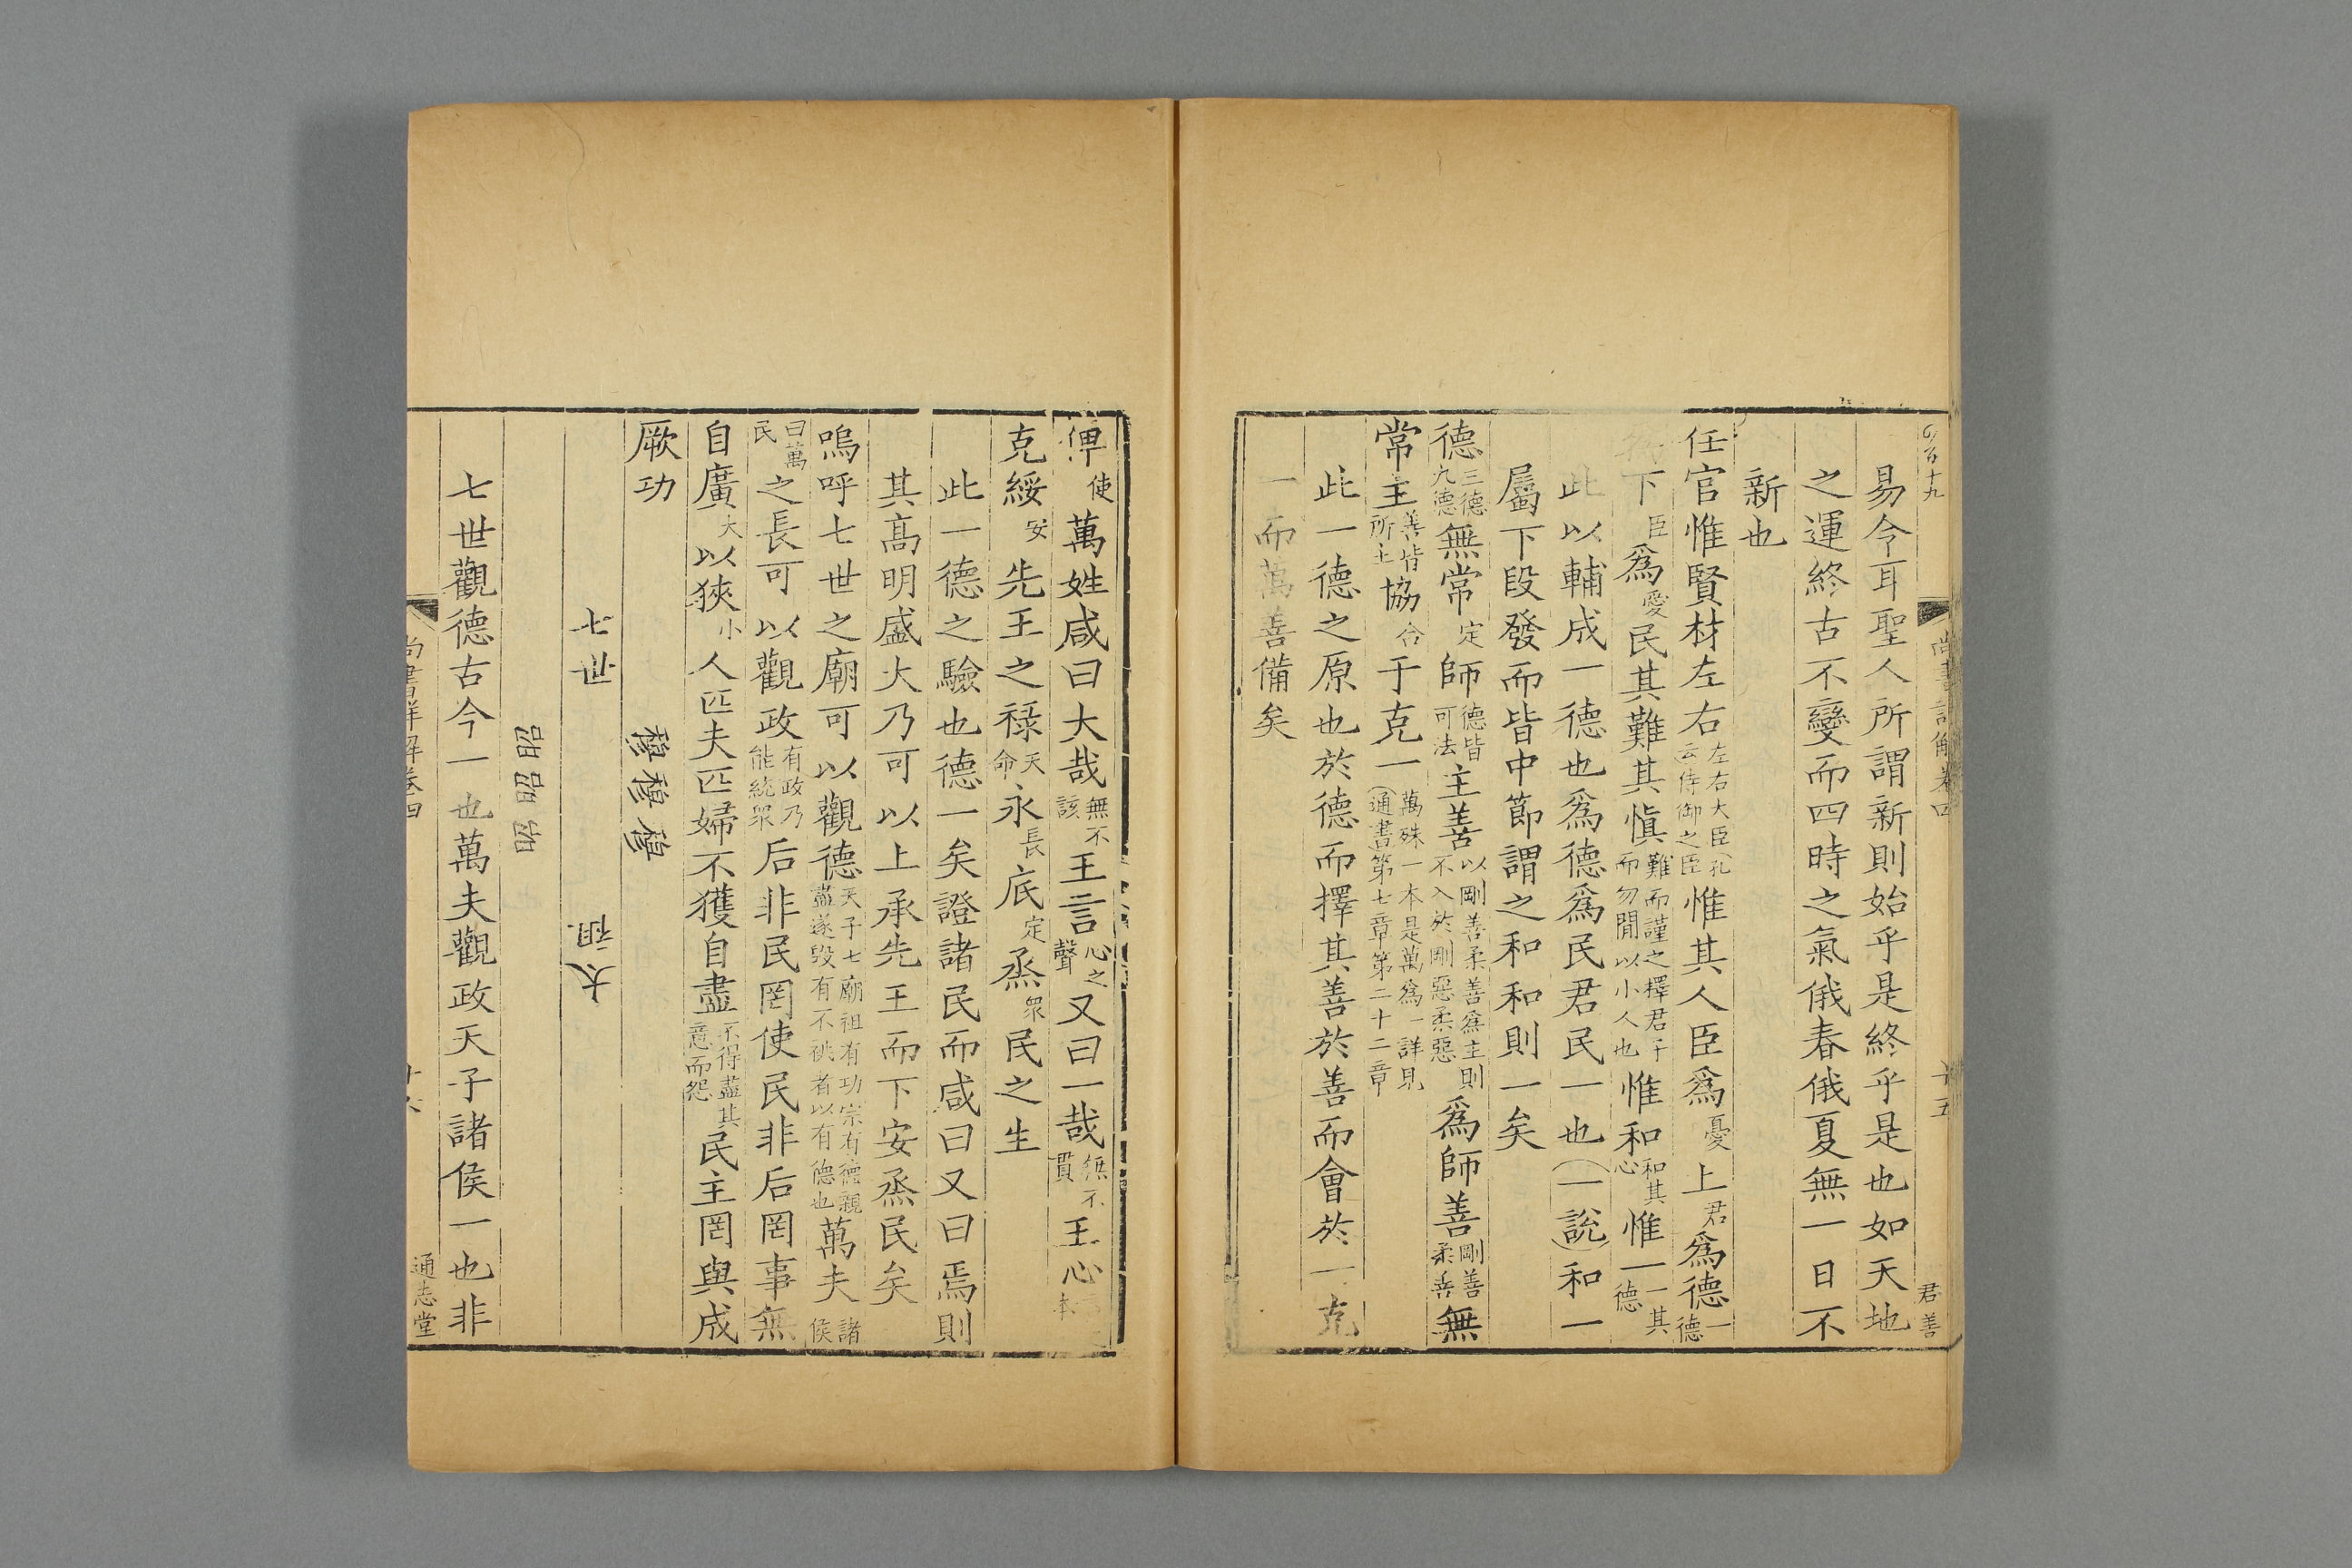 易今耳聖人所謂新則始乎是終乎是也如天地
之運終古不變而四時之氣俄春俄夏無一日不
新也
任官惟賢材左右左右大臣孔云侍御之臣惟其人臣爲憂上君爲德一德
下臣爲愛民其難其愼難而謹之擇君子而勿間以小人也惟和和其心惟一一其德
此以輔成一德也爲德爲民君民一也一說和一
屬下段發而皆中節謂之和和則一矣
德三德九德無常定師德皆可法主善以剛善柔善爲主則不入於剛惡柔惡爲師善剛善柔善無
常主善皆所主協合于克一萬殊一本是萬爲一詳見通書第七章第二十二章
此一德之原也於德而擇其善於善而會於一克
一而萬善備矣
十五
君善
俾使萬姓咸曰大哉無不該王言心之聲又曰一哉無不貫王心
克綏安先王之祿天命永長底定烝眾民之生
此一德之驗也德一矣證諸民而咸曰又曰焉則
其高明盛大乃可以上承先王而下安烝民矣
嗚呼七世之廟可以觀德天子七廟祖有功宗有德親盡遂毀有不祧者以有德也萬夫諸侯
曰萬民之長可以觀政有政乃能統眾后非民罔使民非后罔事無
自廣大以狹小人匹夫匹婦不獲自盡不得盡其意而怨民主罔與成
厥功
穆穆穆
七世
太祖
昭昭昭
七世觀德古今一也萬夫觀政天子諸侯一也非
尚書詳解卷四
通志堂